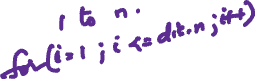 1 to n.
for(i=1 ; i <= d.t.n ; i++)